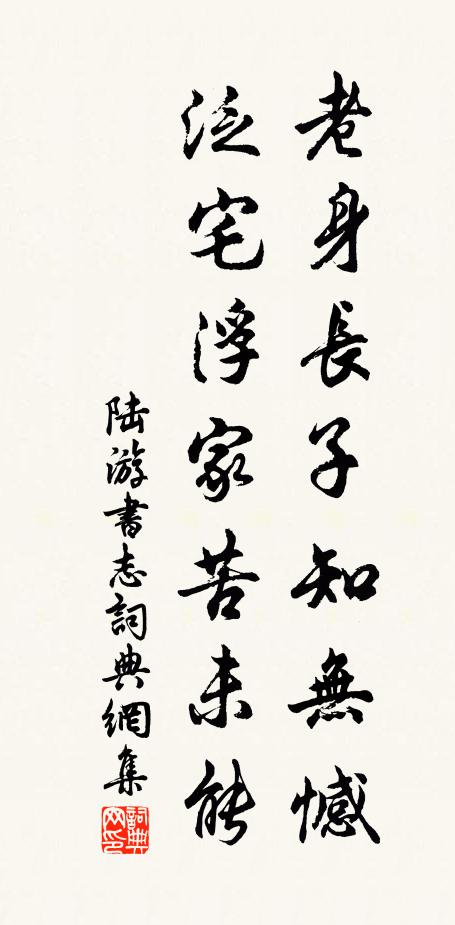 老身長子知無憾
泛宅浮家苦未能
陸游書志詞典網集
詞典网印